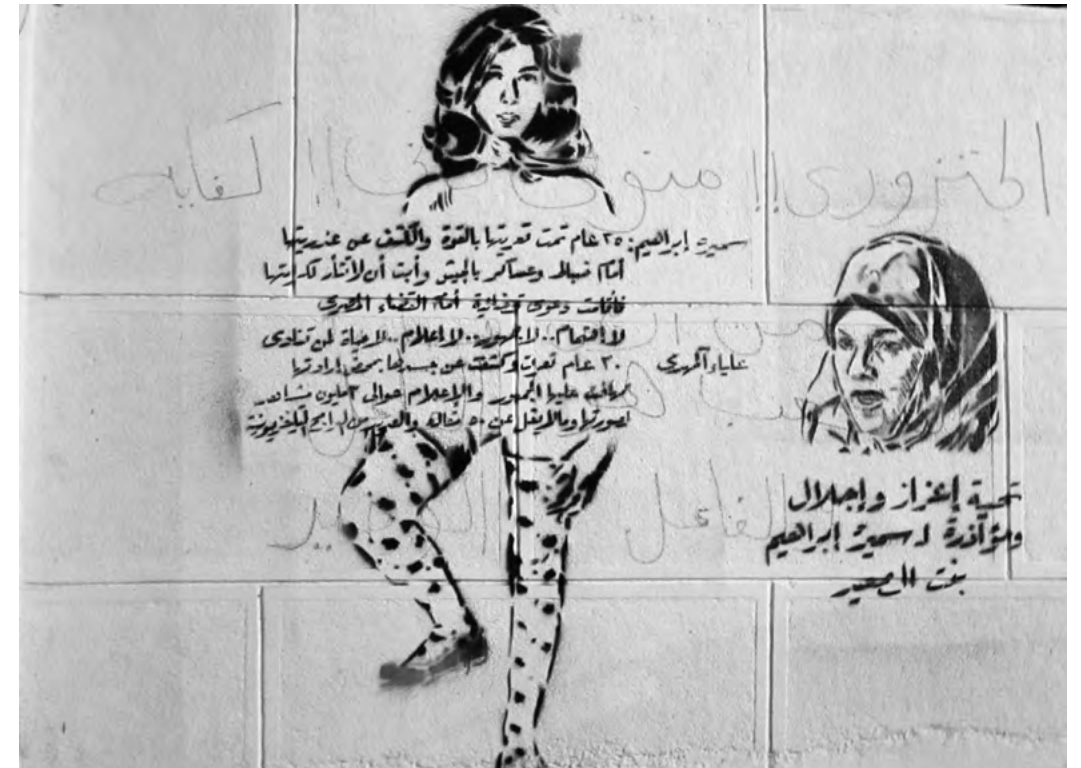 الجنزورى!!
كفاية
سميرة إبراهيم: ٢٥ عام تمت تعريتها بالقوة والكشف عن عذريتها
أمام ضباط وعساكر بالجيش وأبت أن لا تثأر لكرامتها
فأقامت دعوى قضائية أمام القضاء المصرى
لا إهتمام.. لا جمهور.. لا إعلام.. لا حياة لمن تنادى
علياء المهدى ٢٠ عام تعرت وكشفت عن جسدها بمحض إرادتها
تهافت عليها الجمهور والإعلام حوالى ٣ مليون مشاهد
لصورتها ومالايقل عن ٥٠ مقالة والعديد من البرامج التليفزيونية
تحية إعزاز وإجلال
ومؤازرة لـ سميرة إبراهيم
بنت الصعيد